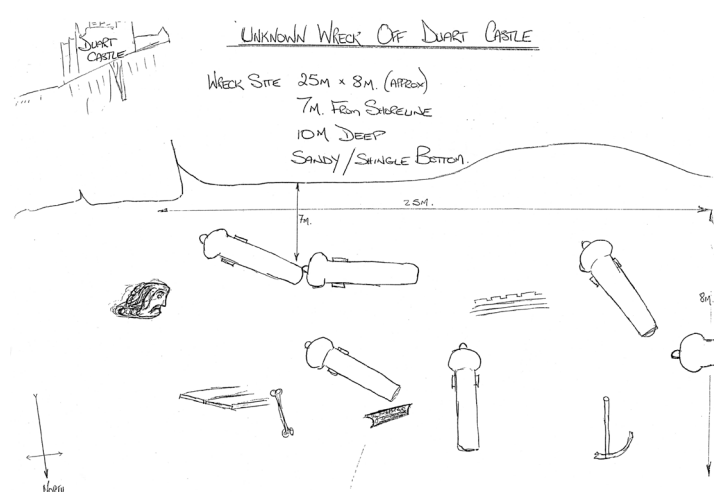 DUART
CASTLE
'UNKNOWN WRECK' OFF DUART CASTLE
WRECK SITE 25M × 8M. (APPROX)
7M. FROM SHORELINE
10M DEEP
SANDY/SHINGLE BOTTOM.
25M.
7M.
8M.
NORTH